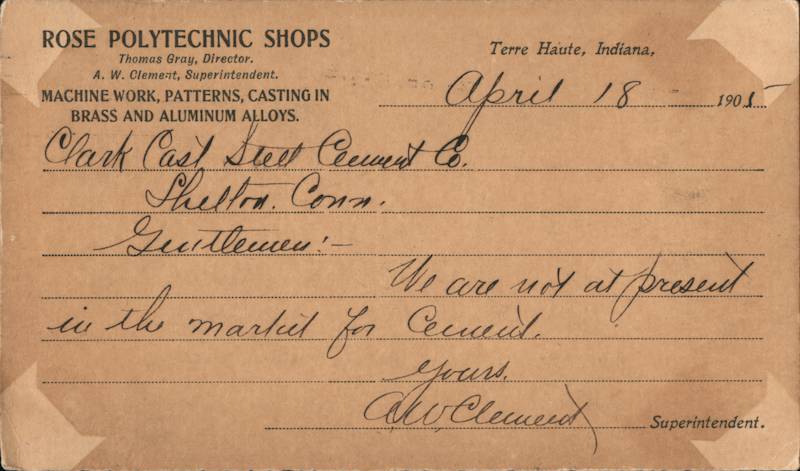 ROSE POLYTECHNIC SHOPS
Thomas Gray, Director.
A. W. Clement, Superintendent.
MACHINE WORK, PATTERNS, CASTING IN
BRASS AND ALUMINUM ALLOYS.
Terre Haute, Indiana,
April 18 1905
Clark Cast Steel Cement Co.
Shelton. Conn.
Gentlemen:-
We are not at present
in the market for Cement.
Yours.
A.W. Clement Superintendent.